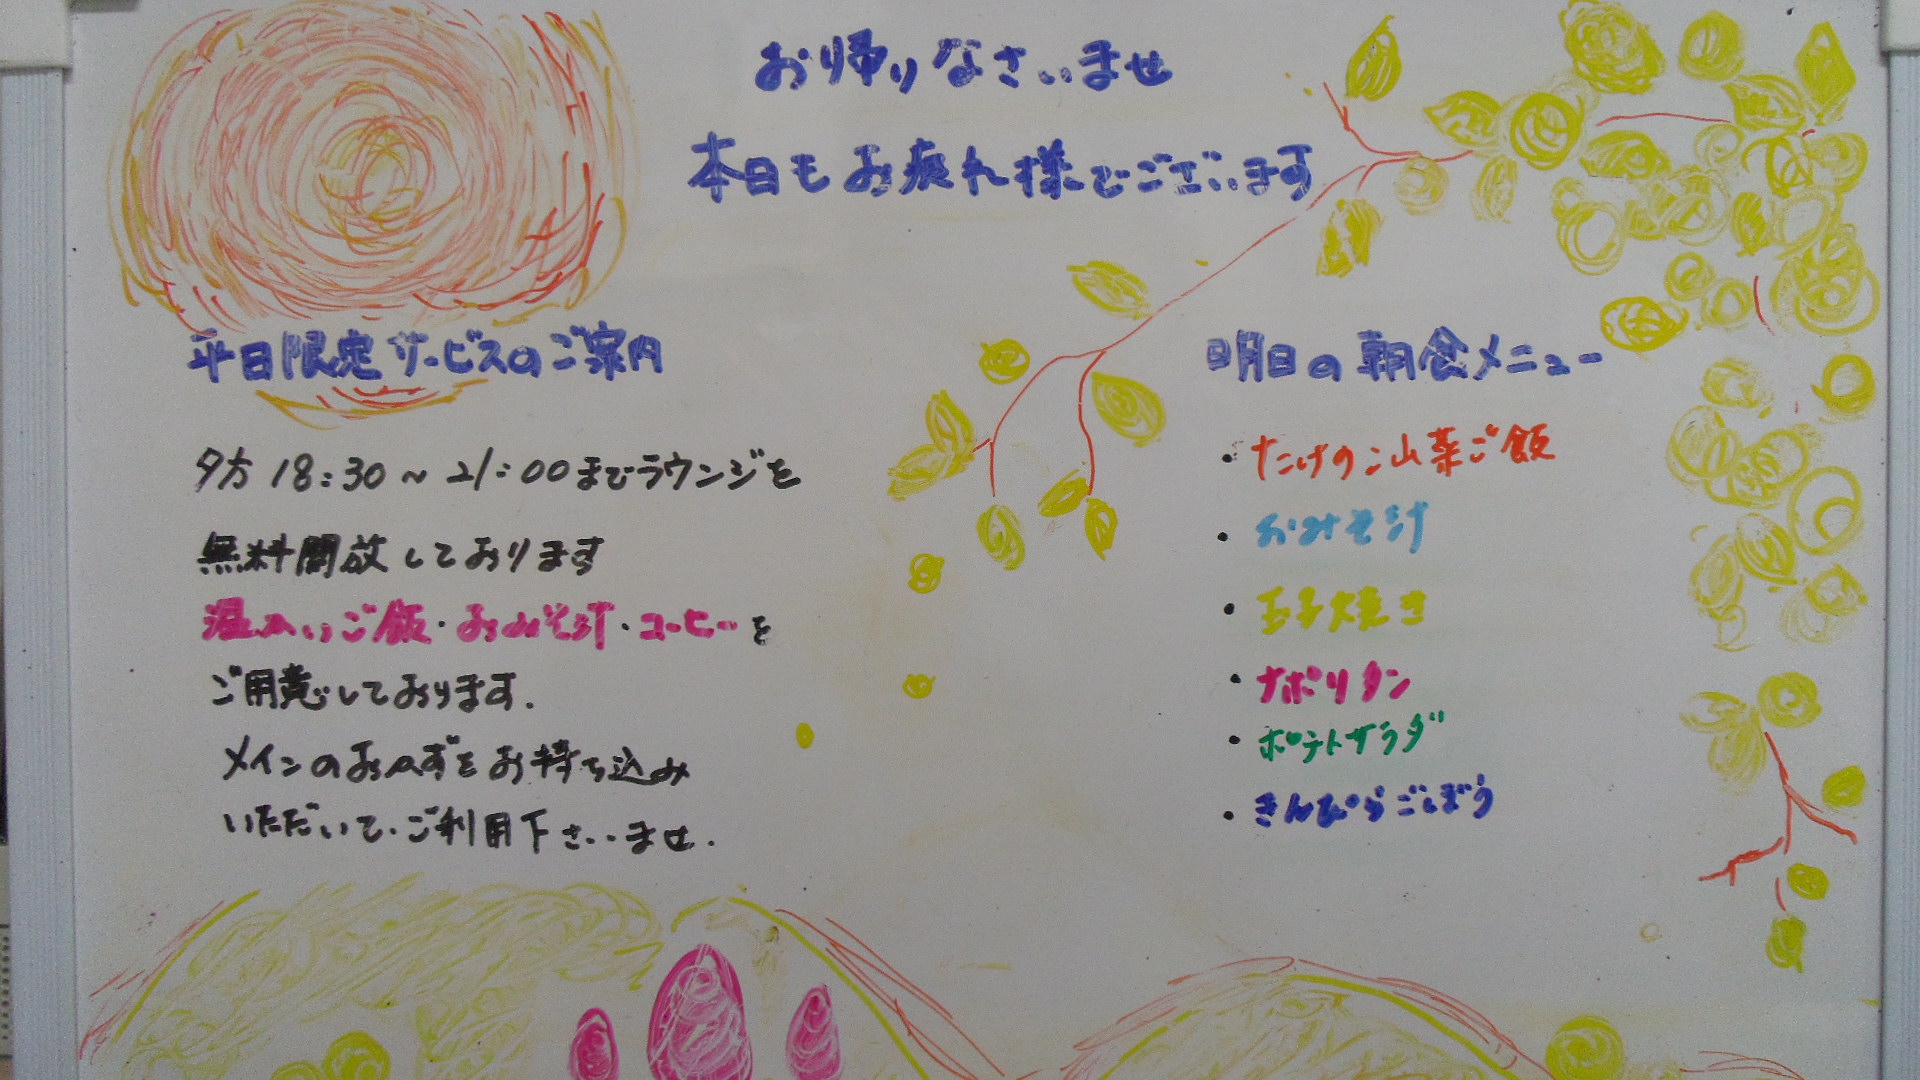 お帰りなさいませ
本日もお疲れ様でございます
平日限定サービスのご案内
夕方18:30~21:00までラウンジを
無料開放しております
温かいご飯・おみそ汁・コーヒーを
ご用意しております.
メインのおかずをお持ち込み
いただいて、ご利用下さいませ.
明日の朝食メニュー
・たけのこ山菜ご飯
・おみそ汁
・玉子焼き
・ナポリタン
・ポテトサラダ
・きんぴらごぼう